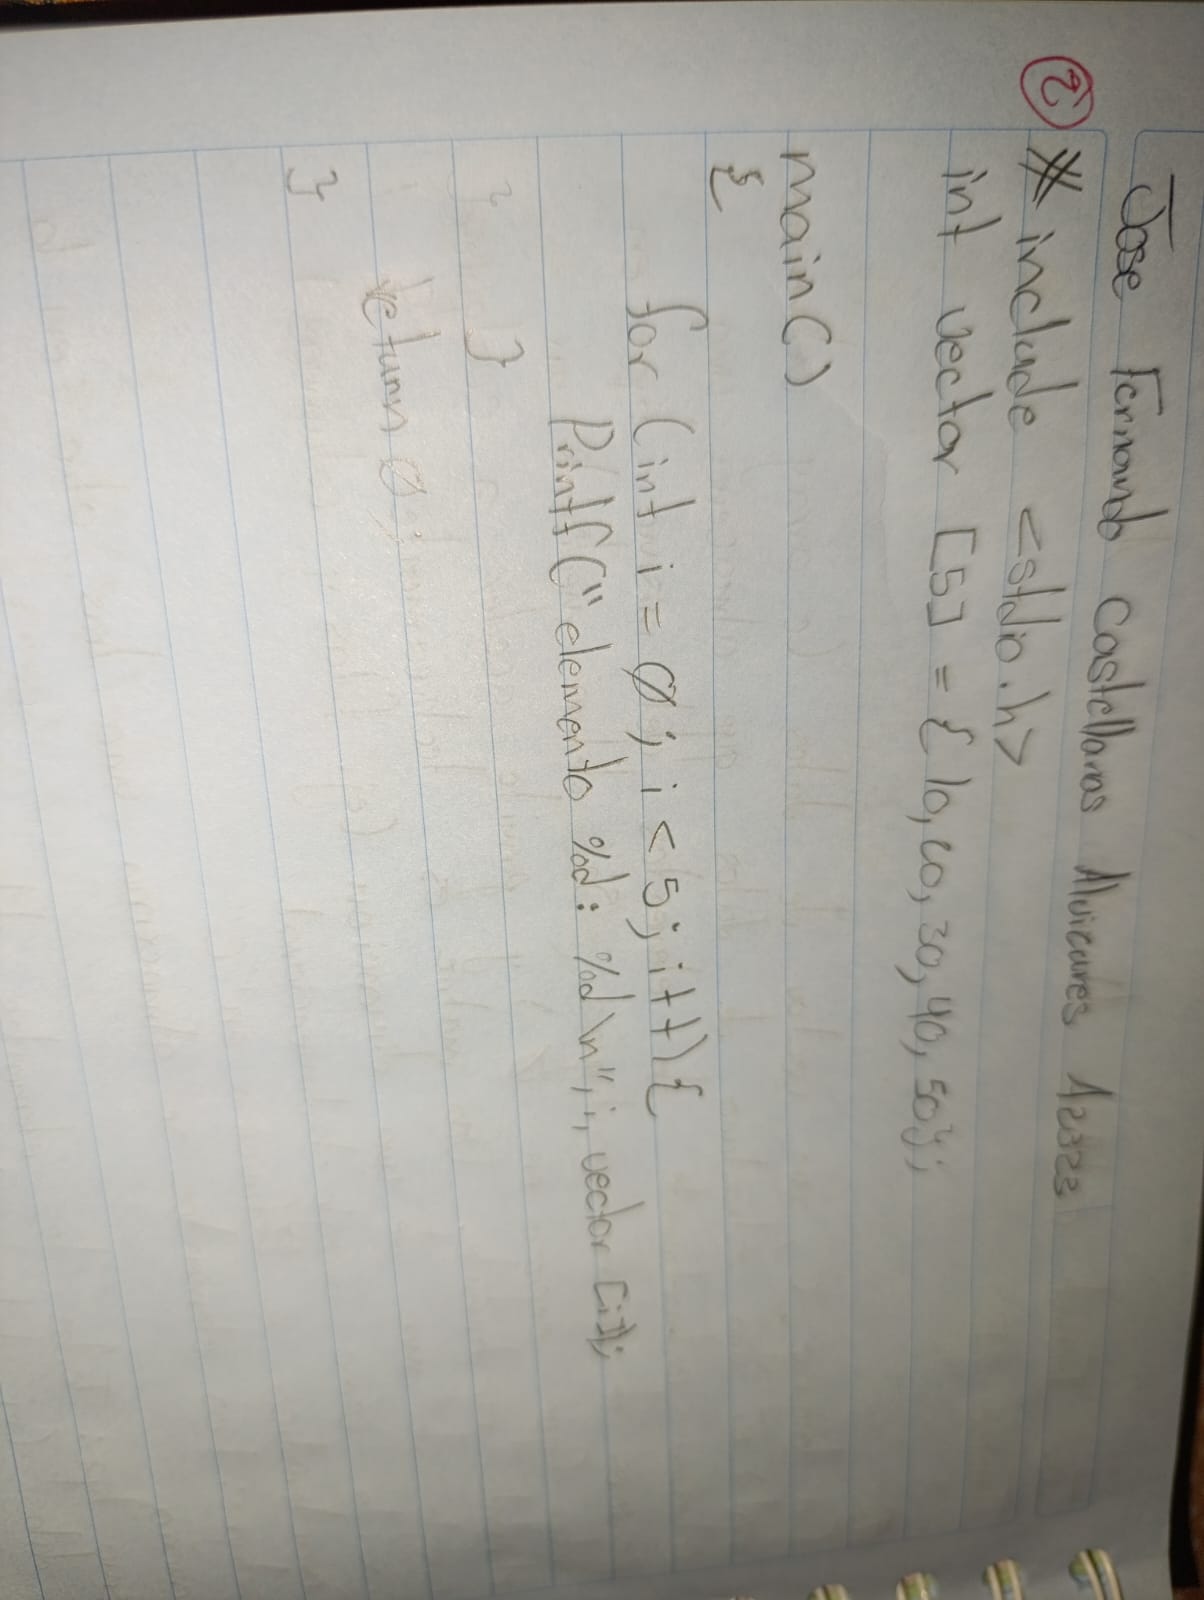 Jose Fernando Castellanos Alvizures 12323
② # include <stdio.h>
int vector [5] = { 10, 20, 30, 40, 50};
main()
{
for (int i = 0; i < 5; i++) {
Printf (" elemento %d: %d \n", i, vector [i]);
}
return 0;
}